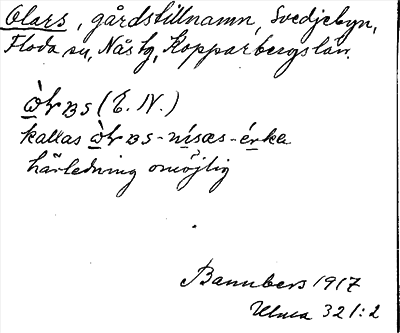 Olars, gårdstillnamn, Svedjebyn,
Floda sn, Nås tg, Kopparbergs län.
(E. N.)
kallas
härledning omöjlig
Bannbers 1917
Ulma 321:2